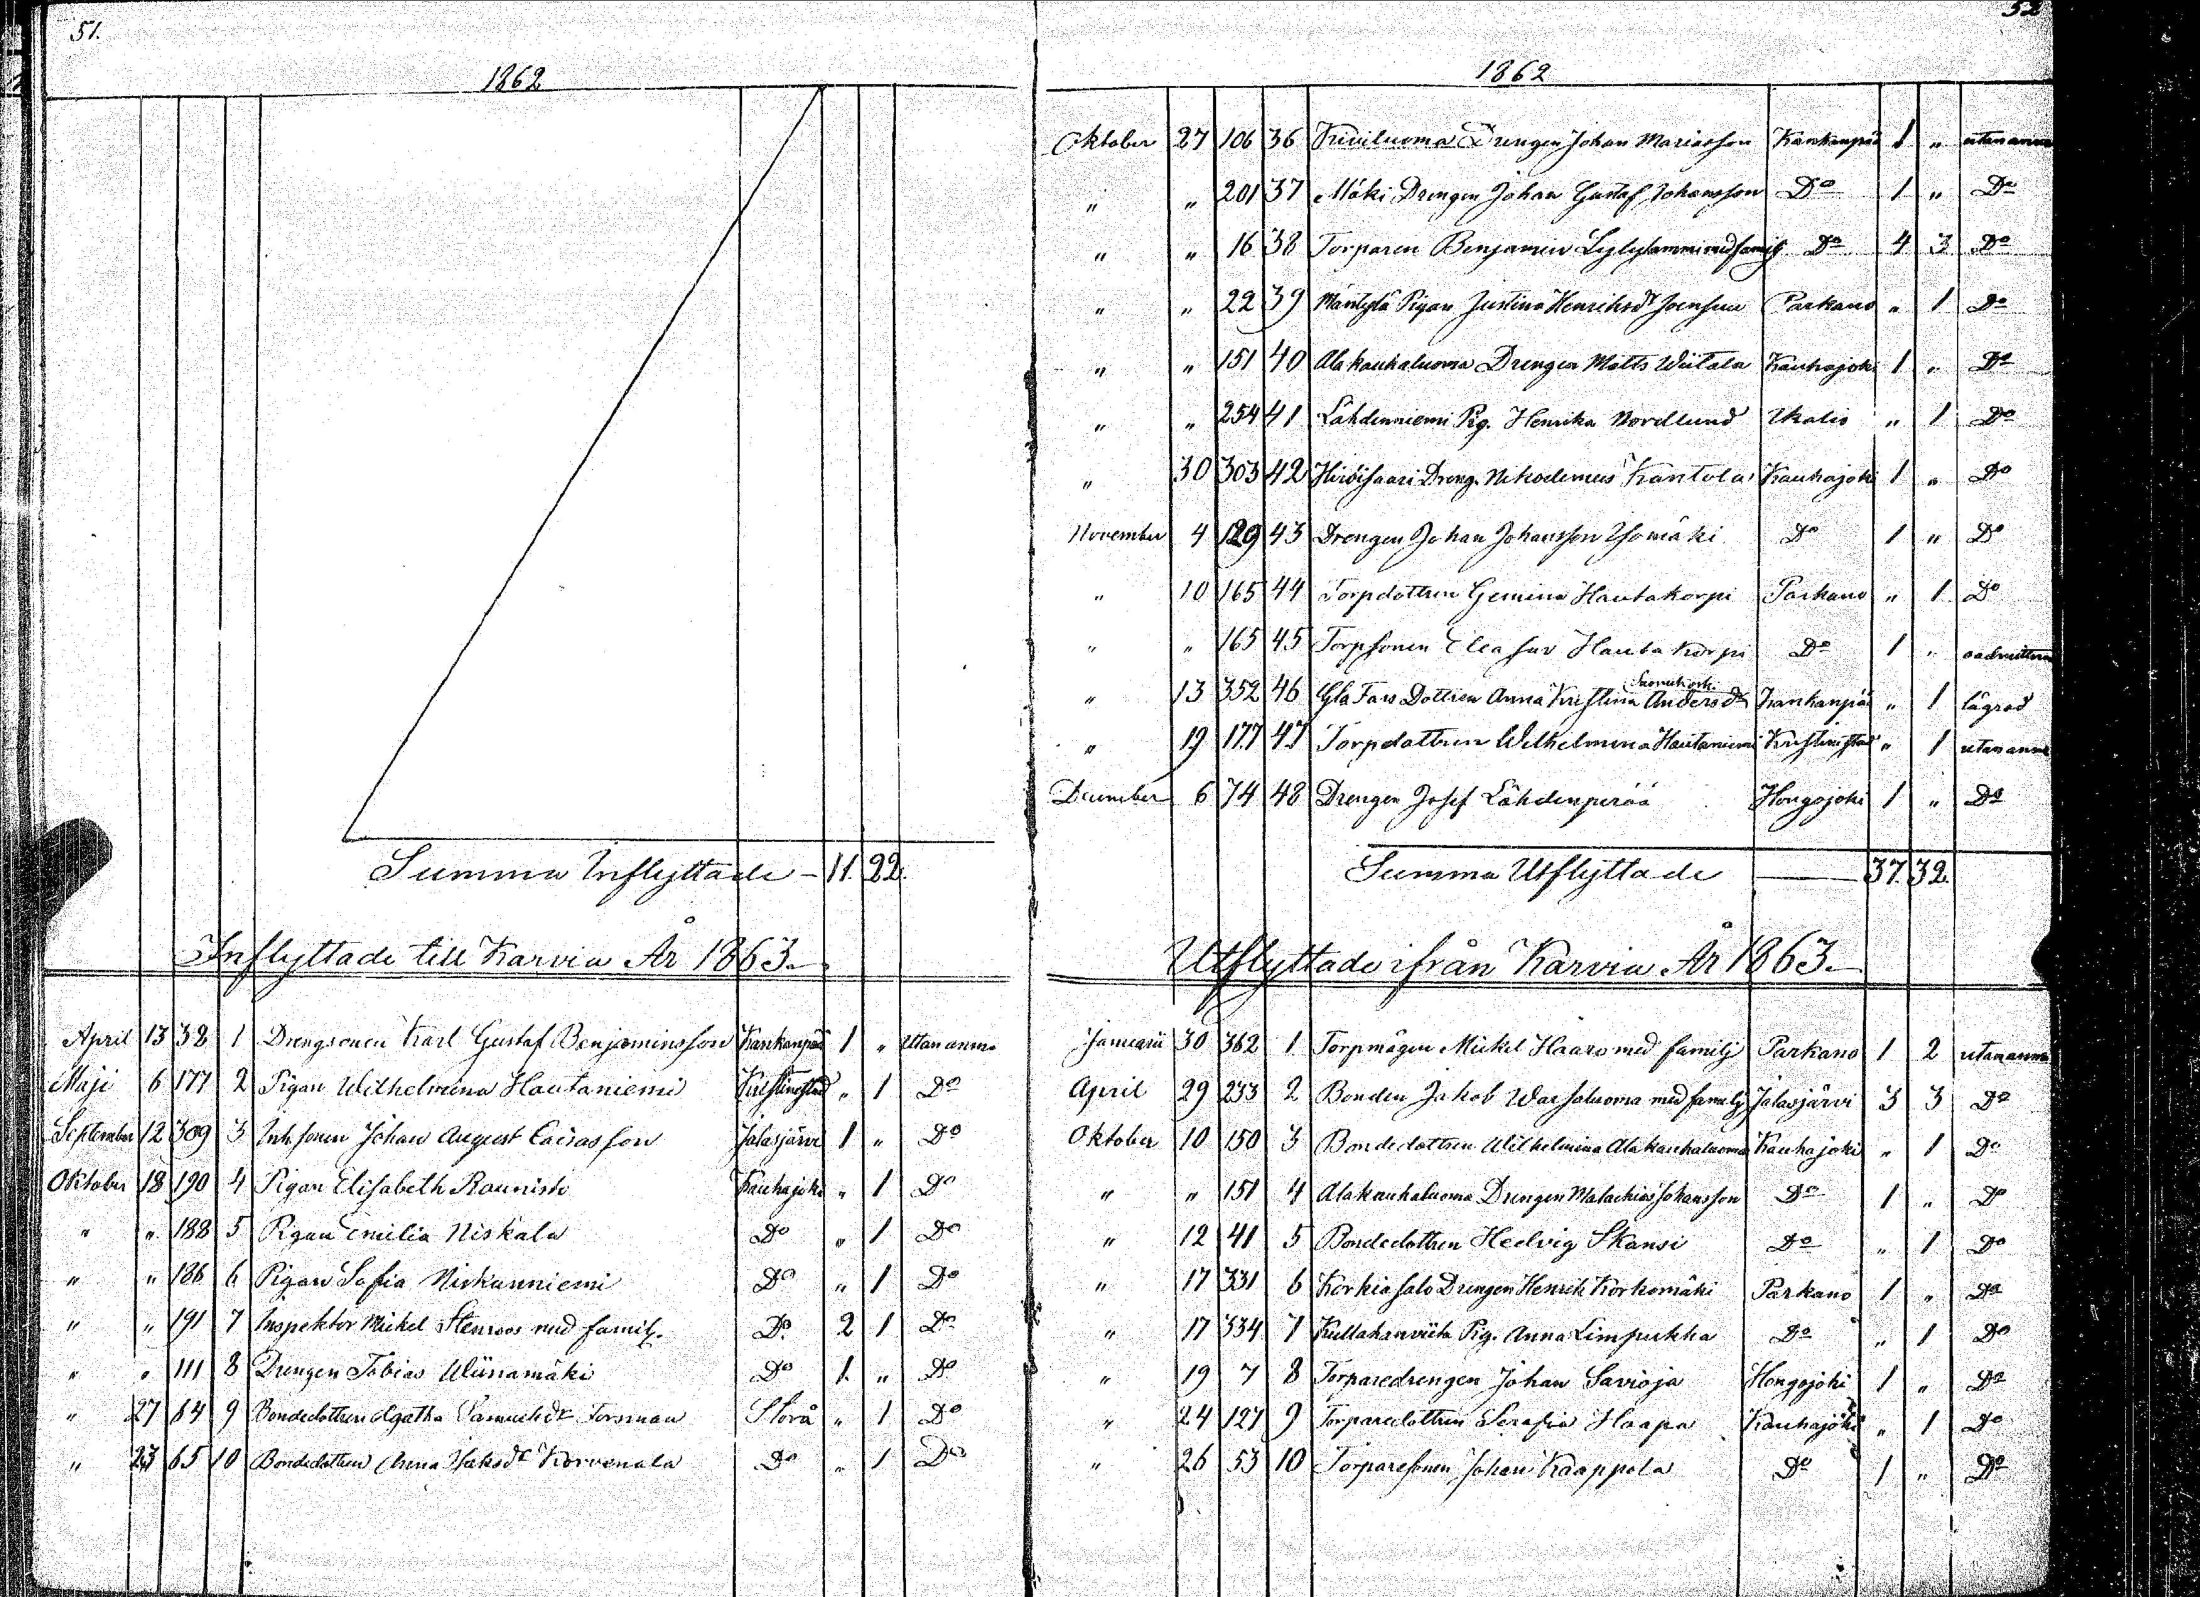 51.
1862
Summa Inflyttade – 11. 22.
Inflyttade till Karvia År 1863.
April 13 32 1 Drengsonen Karl Gustaf Benjaminsson Kankanpää 1 " Utan anm.
Maji 6 177 2 Pigan Wilhelmina Hautaniemi Kristinestad " 1 Do
September 12 309 3 Inh. sonen Johan August 1 " Do
Jalasjärvi
Oktober 18 190 4 Pigan Elisabeth Raunisto Kauhajoki " 1 Do
" " 188 5 Pigan Emilia Niskala Do " 1 Do
" " 186 6 Pigan Sofia Niskanniemi Do " 1 Do
" " 191 7 Inspektor Mickel Stenroos med familj. Do 2 1 Do
" " 111 8 Drengen Tobias Do 1 " Do
" 27 64 9 Bondedottren Agatha Samuelsdr Forsman Storå " 1 Do
" 23 65 10 Bondedottren Anna Isaksdr Korvenala Do " 1 Do
52
1862
Oktober 27 106 36 Kiviluoma Drengen Johan Mariasson Kankanpää 1 " utan anm
" " 201 37 Mäki Drengen Johan Gustaf Johansson Do 1 " Do
" " 16 38 Torparen Benjamin Lylysammi med familj Do 4 3 Do
" " 22 39 Mäntylä Pigan Justina Henriksdr Joensuu Parkano " 1 Do
" " 151 40 Alakauhaluoma Drengen Matts Wiitala Kauhajoki 1 " Do
" " 254 41 Lähdenniemi Pig. Henrika Nordlund Ikalis " 1 Do
" 30 303 42 Hirvisaari Dreng. Nikodemus Kantola Kauhajoki 1 " Do
November 4 129 43 Drengen Johan Johansson Isomäki Do 1 " Do
" 10 165 44 Torpdottren Gemina Hautakorpi Parkano " 1 Do
" " 165 45 Torpsonen Eleasar Hautakorpi Do 1 " oadmitterad
" 13 352 46 Gla Fars Dottren Anna Kristina Andersdr Kankanpää " 1 lägrad
" 19 177 47 Torpdottren Wilhelmina Hautaniemi Kristinestad " 1 utan anm
December 6 74 48 Drengen Josef Lähdenperää Hongojoki 1 " Do
Summa Utflyttade 37. 32.
Utflyttade ifrån Karvia År 1863.
Januari 30 362 1 Torpmågen Mickel Haaro med familj Parkano 1 2 utan anm
April 29 233 2 Bonden Jakob Warsaluoma med familj Jalasjärvi 3 3 Do
Oktober 10 150 3 Bondedottren Wilhelmina Alakauhaluoma Kauhajoki " 1 Do
" " 151 4 Alakauhaluoma Drengen Malachias Johansson Do 1 " Do
" 12 41 5 Bondedottren Hedvig Skansi Do " 1 Do
" 17 331 6 Korkiasalo Drengen Henrik Korkomäki Parkano 1 " Do
" 17 334 7 Kullakanviita Pig. Anna Limpukka Do " 1 Do
" 19 7 8 Torparedrengen Johan Savioja Hongojoki 1 " Do
" 24 127 9 Torparedottren Serafia Haapa Kauhajoki " 1 Do
" 26 53 10 Torparesonen Johan Kaappola Do 1 " Do